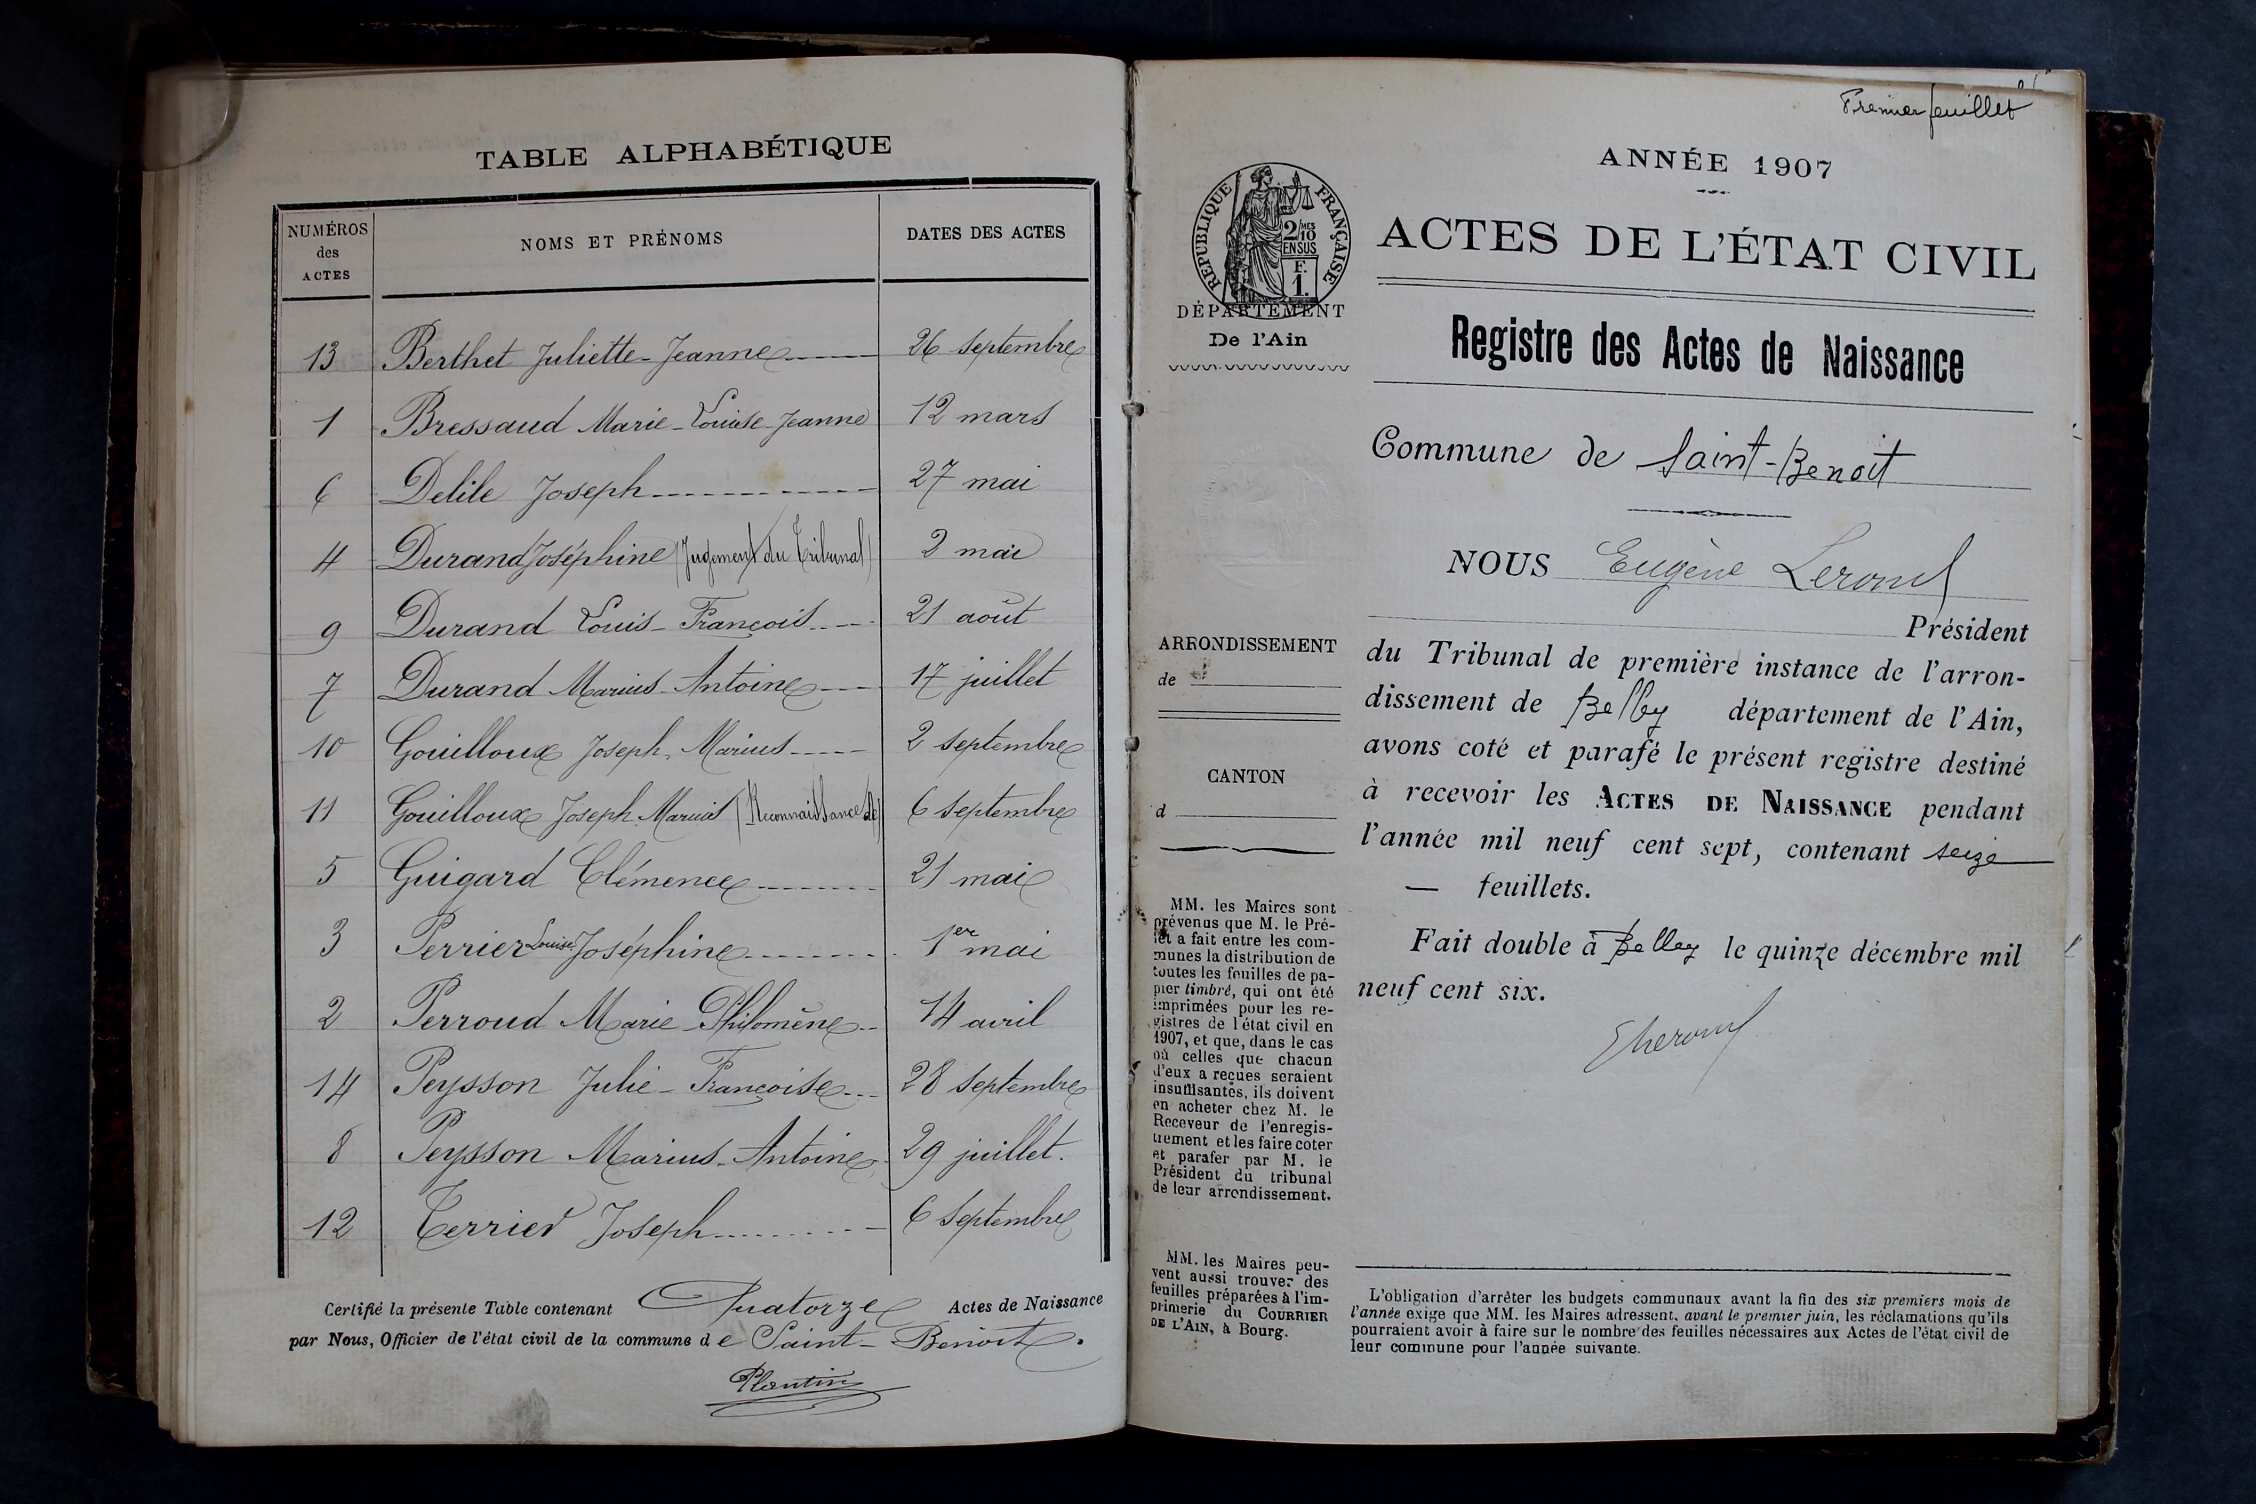 TABLE ALPHABÉTIQUE
NUMÉROS des ACTES | NOMS ET PRÉNOMS | DATES DES ACTES
13 Berthet Juliette-Jeanne 26 septembre
1 Bressaud Marie-Louise-Jeanne 12 mars
6 Delile Joseph 27 mai
4 Durand Joséphine (Jugement du Tribunal) 2 mai
9 Durand Louis-François 21 août
7 Durand Marius-Antoine 17 juillet
10 Gouilloux Joseph-Marius 2 septembre
11 Gouilloux Joseph-Marius (Reconnaissance de) 6 septembre
5 Guigard Clémence 21 mai
3 Perrier Louise Joséphine 1er mai
2 Perroud Marie-Philomène 14 avril
14 Peysson Julie-Françoise 28 septembre
8 Peysson Marius-Antoine 29 juillet.
12 Terrier Joseph 6 septembre
Certifié la présente Table contenant Quatorze Actes de Naissance
par Nous, Officier de l'état civil de la commune de Saint-Benoit.
Plantin
Premier feuillet
ANNÉE 1907
ACTES DE L'ÉTAT CIVIL
RÉPUBLIQUE FRANÇAISE
2/10 MES
EN SUS
F.
1.
DÉPARTEMENT
De l'Ain
Registre des Actes de Naissance
Commune de Saint-Benoit
NOUS Eugène
Président
du Tribunal de première instance de l'arron-
dissement de Belley département de l'Ain,
avons coté et parafé le présent registre destiné
à recevoir les ACTES DE NAISSANCE pendant
l'année mil neuf cent sept, contenant seize
— feuillets.
Fait double à Belley le quinze décembre mil
neuf cent six.
ARRONDISSEMENT
de
CANTON
d
MM. les Maires sont
prévenus que M. le Pré-
fet a fait entre les com-
munes la distribution de
toutes les feuilles de pa-
pier timbré, qui ont été
imprimées pour les re-
gistres de l'état civil en
1907, et que, dans le cas
où celles que chacun
d'eux a reçues seraient
insuffisantes, ils doivent
en acheter chez M. le
Receveur de l'enregis-
trement et les faire coter
et parafer par M. le
Président du tribunal
de leur arrondissement.
MM. les Maires peu-
vent aussi trouver des
feuilles préparées à l'im-
primerie du COURRIER
DE L'AIN, à Bourg.
L'obligation d'arrêter les budgets communaux avant la fin des six premiers mois de
l'année exige que MM. les Maires adressent, avant le premier juin, les réclamations qu'ils
pourraient avoir à faire sur le nombre des feuilles nécessaires aux Actes de l'état civil de
leur commune pour l'année suivante.